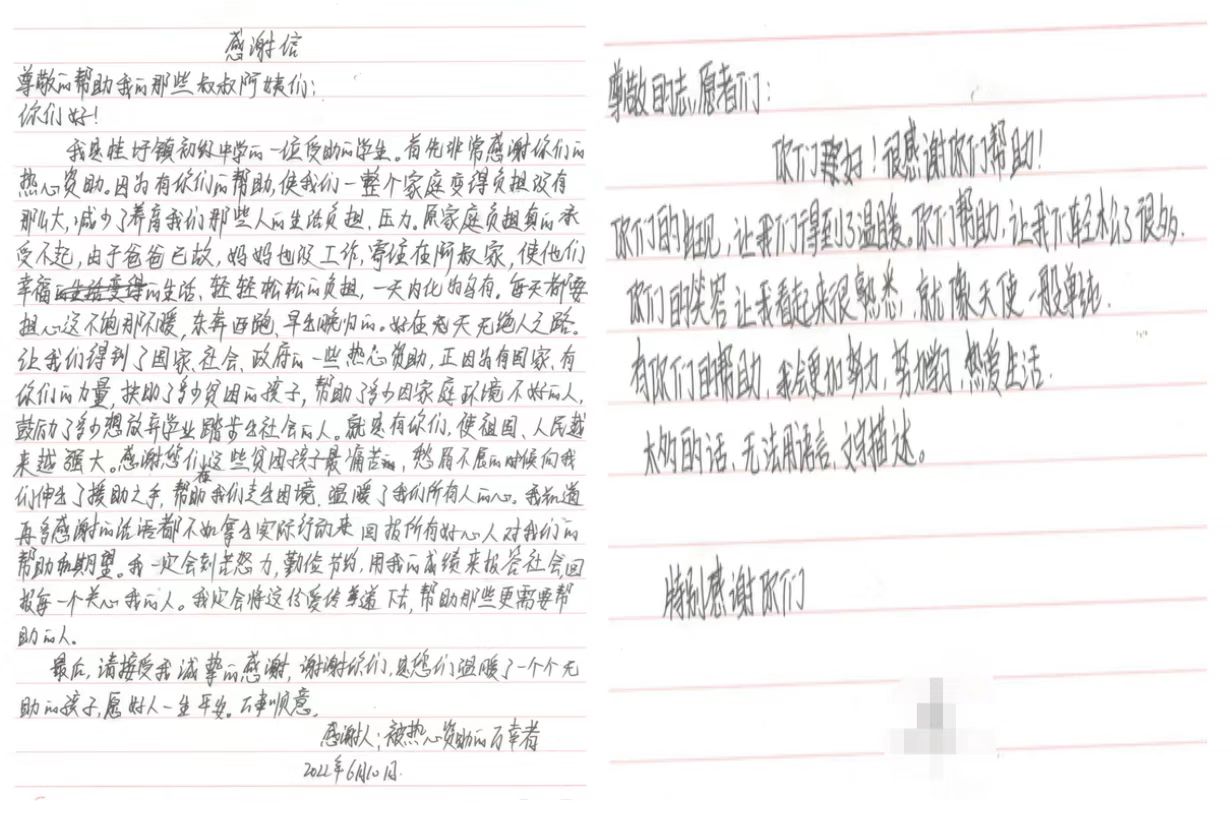 感谢信
尊敬的帮助我的那些叔叔阿姨们：
你们好！
我是桂圩镇初级中学的一位受助的学生。首先非常感谢你们的
热心资助。因为有你们的帮助，使我们一整个家庭变得负担没有
那么大，减少了养育我们那些人的生活负担、压力。原家庭负担真的承
受不起，由于爸爸已故，妈妈也没工作，寄住在阿叔家，使他们
幸福的生活、轻轻松松的负担，一天内化为乌有。每天都要
担心这不饱那不暖，东奔西跑、早出晚归的。好在老天无绝人之路。
让我们得到了国家、社会、政府的一些热心资助，正因为有国家、有
你们的力量，扶助了多少贫困的孩子，帮助了多少因家庭环境不好的人，
鼓励了多少想放弃学业踏步出社会的人。就是有你们，使祖国、人民越
来越强大。感谢您们在这些贫困孩子最痛苦，愁眉不展的时候向我
们伸出了援助之手，帮助我们走出困境，温暖了我们所有人的心。我知道
再多感谢的话语都不如拿出实际行动来回报所有好心人对我们的
帮助和期望。我一定会刻苦努力，勤俭节约，用我的成绩来报答社会，回
报每一个关心我的人。我定会将这份爱传递下去，帮助那些更需要帮
助的人。
最后，请接受我诚挚的感谢，谢谢你们，是您们温暖了一个个无
助的孩子，愿好人一生平安。万事顺意。
感谢人：被热心资助的万幸者
2022年6月10日.
尊敬的志愿者们：
你们好！很感谢你们帮助！
你们的出现，让我们得到了温暖。你们帮助，让我们轻松了很多.
你们的笑容让我看起来很熟悉，就像天使一般单纯.
有你们的帮助，我会更加努力，努力学习，热爱生活.
太多的话，无法用语言、文字描达。
特别感谢你们